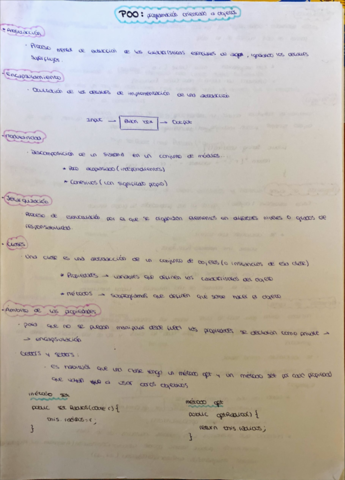 POO: programación orientada a objetos
Abstracción
· Proceso mental de extracción de las características esenciales de algo, ignorando los detalles
superfluos
Encapsulamiento
· Ocultación de los detalles de implementación de una abstracción
Input → BLACK BOX → Output
Modularidad
· Descomposición de un sistema en un conjunto de módulos
• Poco acoplados (independientes)
• Cohesivos (con significado propio)
Jerarquización
Proceso de estructuración por el que se organizan elementos en diferentes niveles o grados de
responsabilidad
Clases
Una clase es una abstracción de un conjunto de objetos (o instancias de esa clase)
• Propiedades → variables que definen las características del objeto
• Métodos → subprogramas que definen qué sabe hacer el objeto
de las propiedades
· para que no se puedan manipular desde fuera las propiedades se declaran como private →
→ encapsulación
Getters y setters:
· es necesario que una clase tenga un método get y un método set por cada propiedad
que vayan a usar otros objetos
método set
método get
public set
public
this
return this
}
}